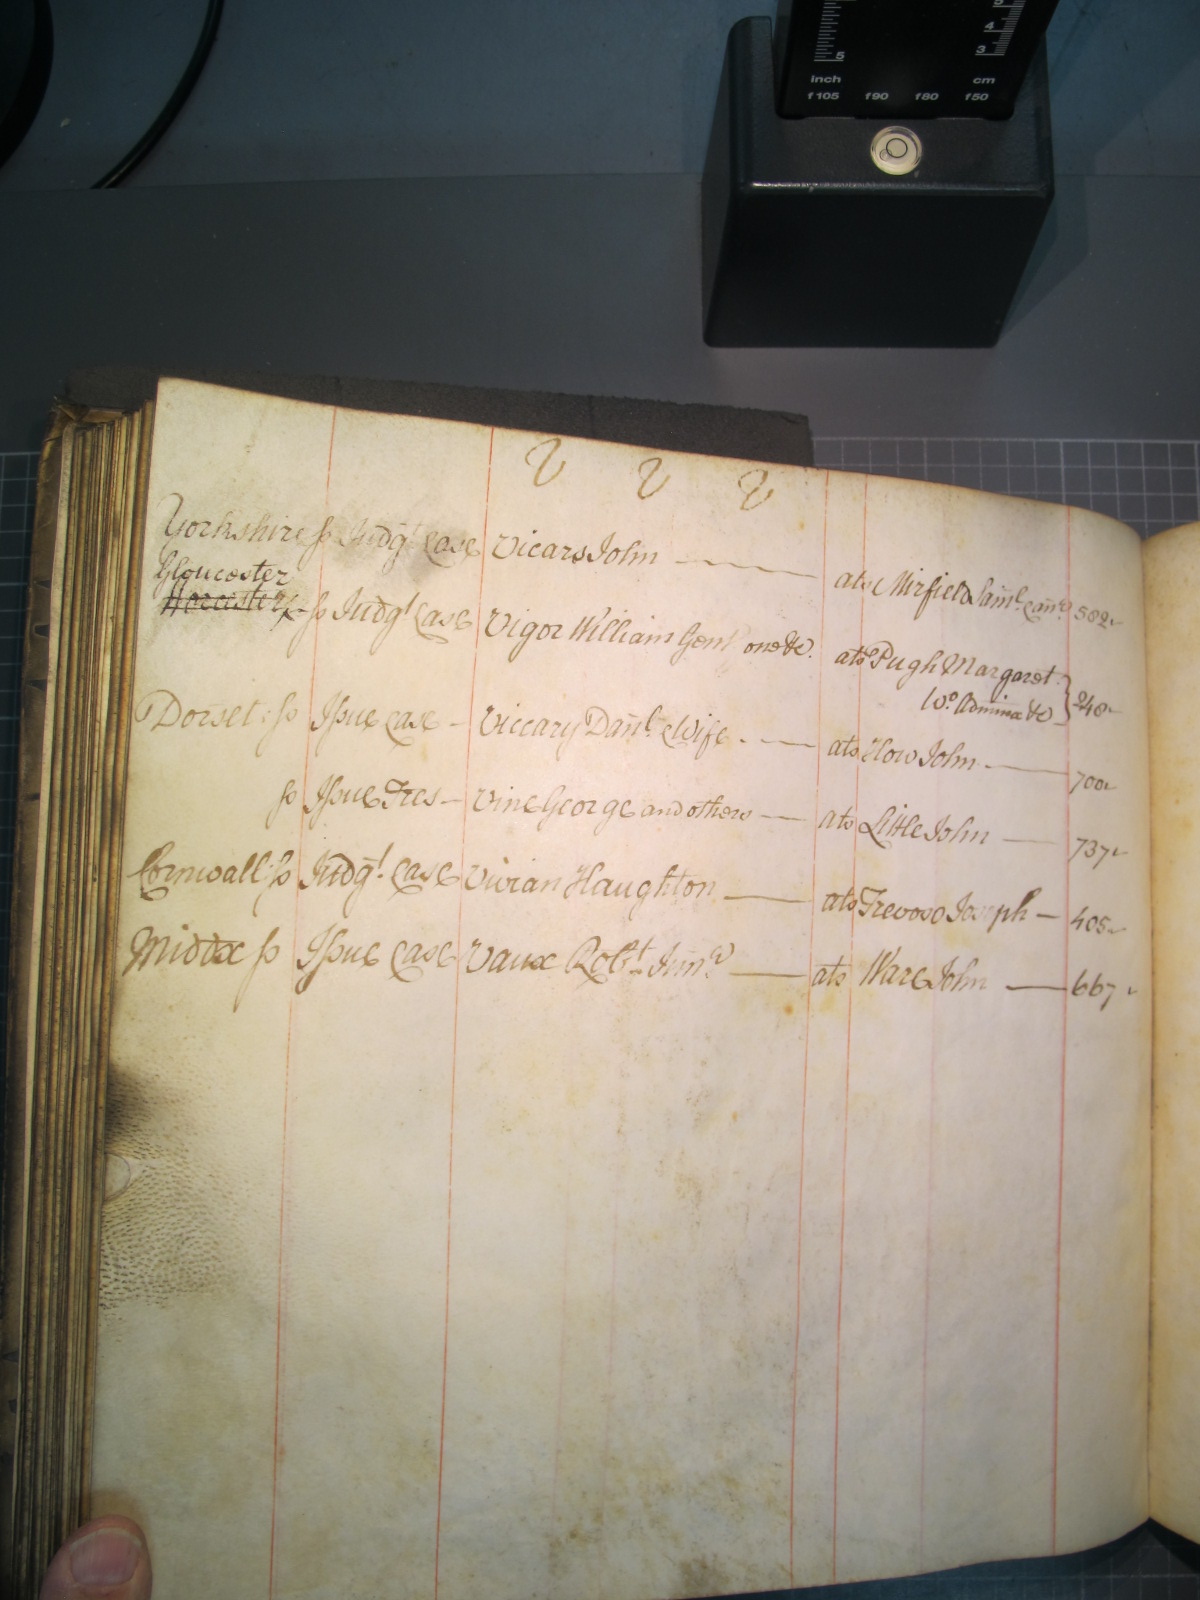 5 5
4
3
inch cm
f105 f90 f80 f50
V V V
Yorkshire ss Judgt Case Vicars John ats Mirfield Saml 582
Gloucester
Worcester ss Judgt Case Vigor William Gent one &c. ats Pugh Margaret
Wo. Adminx &c } 248
Dorset ss Issue Case – Viccary Danl & Wife ats How John 700
ss Issue Tres – Vine George and others ats Little John 737
Cornwall ss Judgt Case Vivian Haughton ats Trevoso Joseph – 405
Middx ss Issue Case Vaux Robt Junr ats Ware John 667